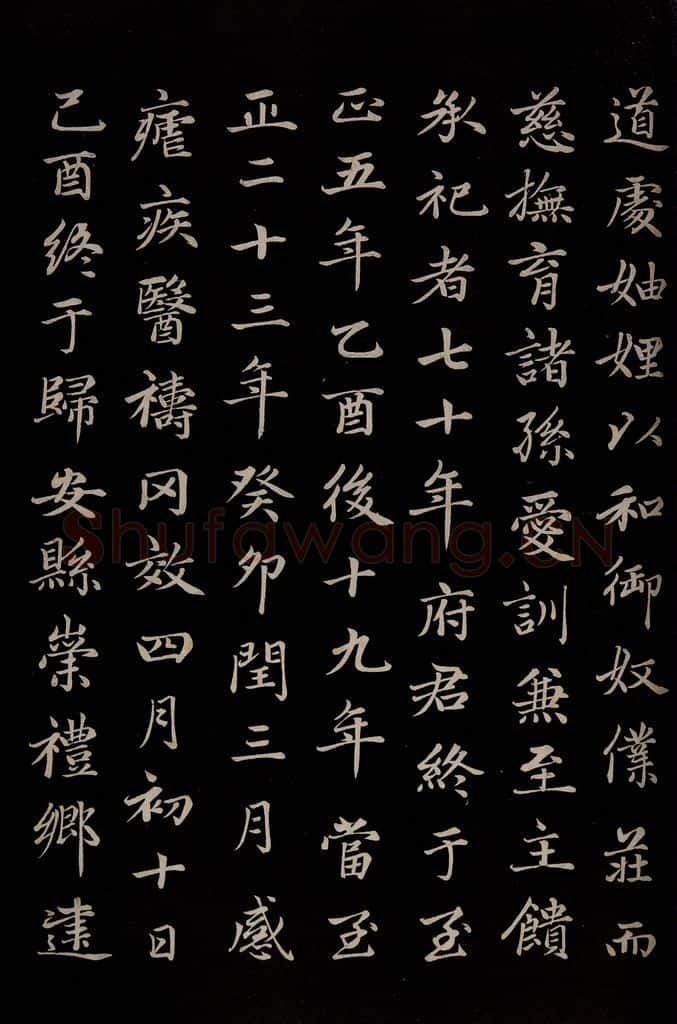 道處妯娌以和御奴僕莊而
慈撫育諸孫愛訓兼至主饋
承祀者七十年府君終于至
正五年乙酉後十九年當至
正二十三年癸卯閏三月感
瘧疾醫禱罔效四月初十日
己酉終于歸安縣崇禮鄉達
Shufawang.CN